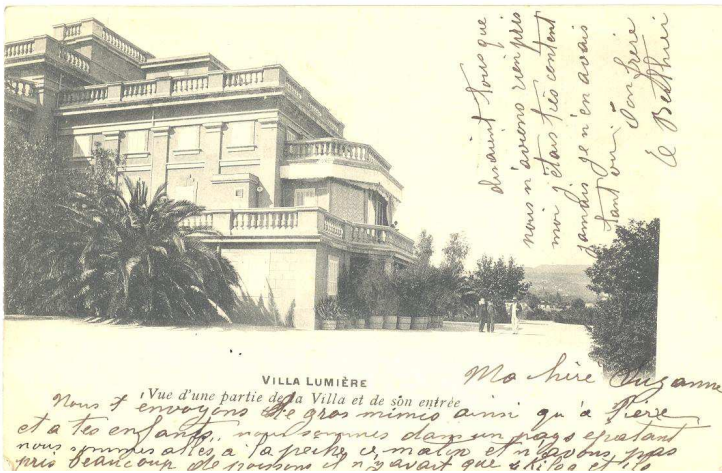 VILLA LUMIÈRE
Vue d'une partie de la Villa et de son entrée
Ma chère Suzanne
Nous t'envoyons de gros mimis ainsi qu'a Pierre
et a tes enfants, nous sommes dans un pays épatant
nous sommes allés a la peche ce matin et n'avons pas
pris beaucoup de poissons il n'y avait que
disaient tous que
nous n'avions rien pris
moi j'etais très content
jamais je n'en avais
tant vu
Ton frere